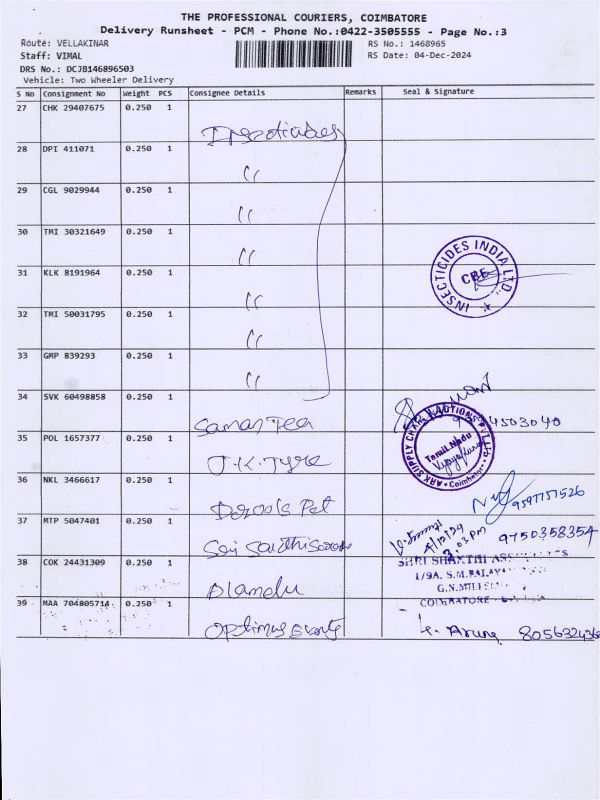 THE PROFESSIONAL COURIERS, COIMBATORE
Delivery Runsheet - PCM - Phone No.:0422-3505555 - Page No.:3
Route: VELLAKINAR RS No.: 1468965
Staff: VIMAL RS Date: 04-Dec-2024
DRS No.: DCJB146896503
Vehicle: Two Wheeler Delivery
S No Consignment No Weight PCS Consignee Details Remarks Seal & Signature
27 CHK 29407675 0.250 1
Insecticides
28 DPI 411071 0.250 1
"
29 CGL 9029944 0.250 1
"
30 TMI 30321649 0.250 1
"
INSECTICIDES INDIA LTD.
CBE
31 KLK 8191964 0.250 1
"
32 TMI 50031795 0.250 1
"
33 GMP 839293 0.250 1
"
34 SVK 60498858 0.250 1
Saman Tea 4503040
35 POL 1657377 0.250 1
J.K. Tyre
ARK SUPPLY CHAIN PVT LTD
Tamil Nadu
Coimbatore
36 NKL 3466617 0.250 1
9597757526
37 MTP 5047401 0.250 1
Sri
4/12/24
3.03 PM
9750358354
38 COK 24431309 0.250 1
SHRI SHAKTHI
1/9A, S.M.PALAYAM
G.N.MILLS
COIMBATORE
Alamelu
39 MAA 704805714 0.250 1
Optimus Events K. Arung 805632436